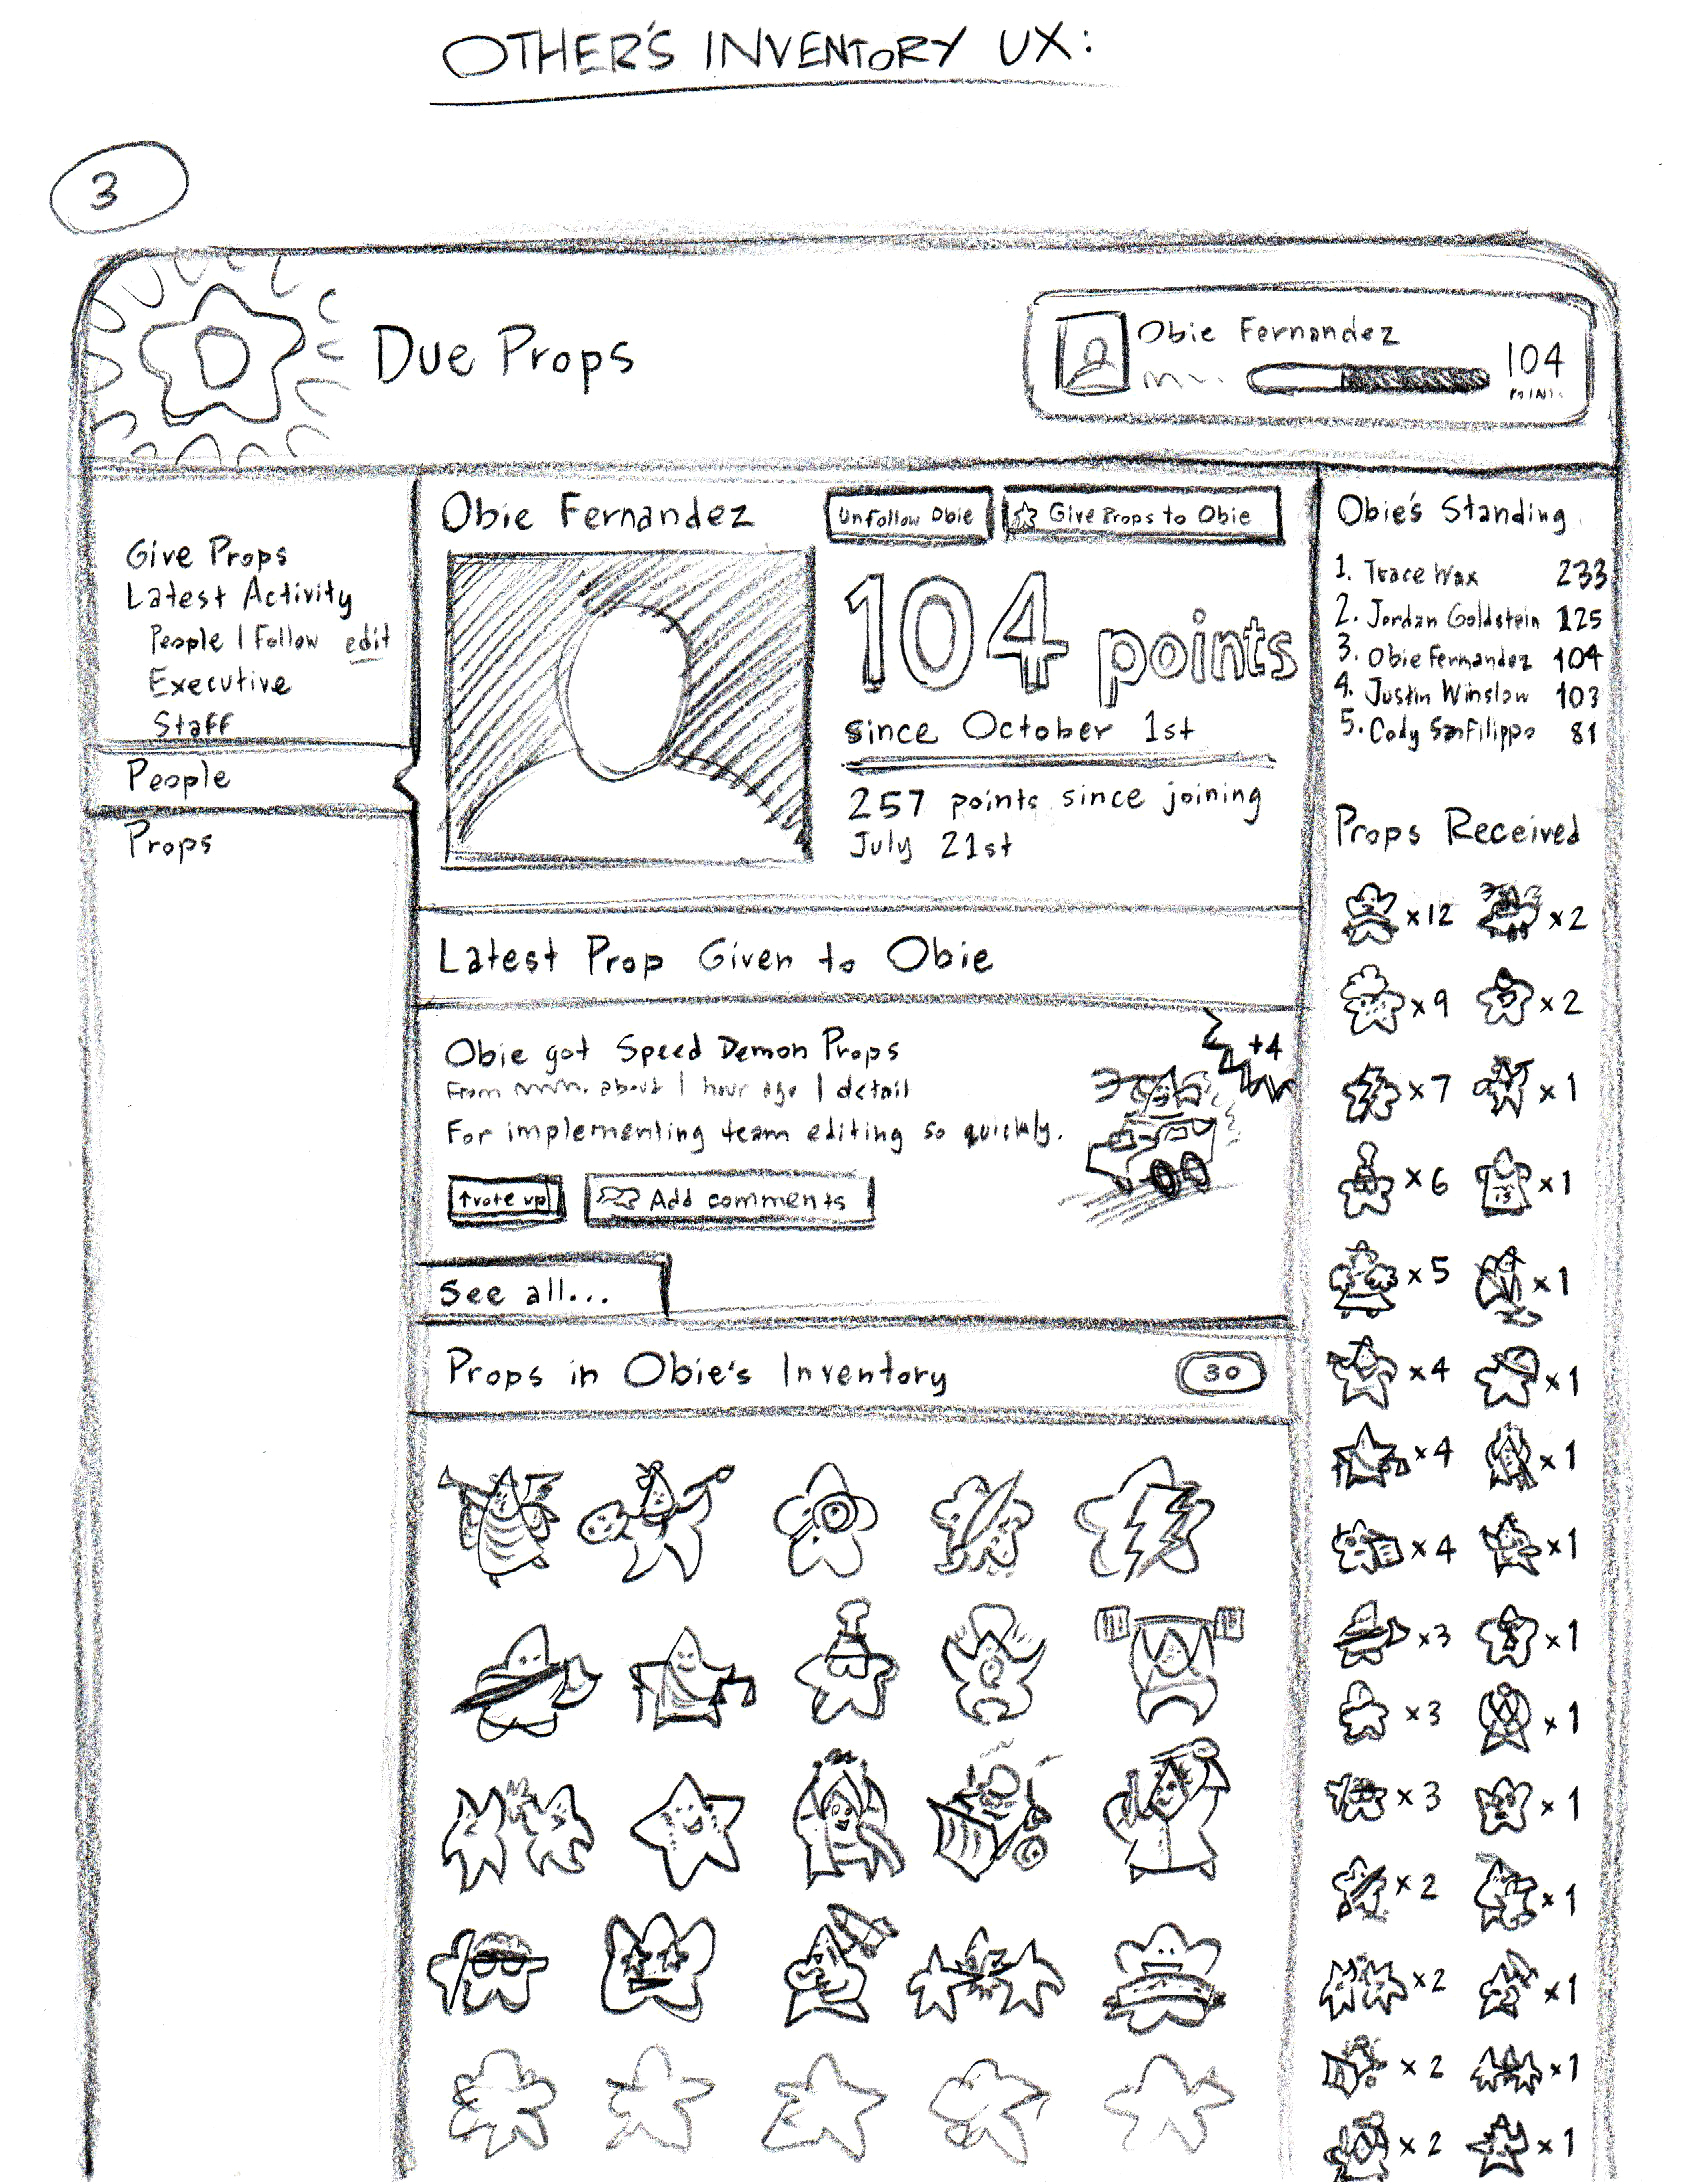 OTHER'S INVENTORY UX:
3
Due Props
Obie Fernandez
104
POINTS
Give Props
Latest Activity
People I Follow edit
Executive
Staff
People
Props
Obie Fernandez
Unfollow Obie
Give Props to Obie
104 points
since October 1st
257 points since joining
July 21st
Latest Prop Given to Obie
Obie got Speed Demon Props
+4
From about 1 hour ago | detail
For implementing team editing so quickly.
↑vote up
Add comments
See all...
Props in Obie's Inventory
30
Obie's Standing
1. Trace Wax 233
2. Jordan Goldstein 125
3. Obie Fernandez 104
4. Justin Winslow 103
5. Cody SanFilippo 81
Props Received
x12 x2
x9 x2
x7 x1
x6 x1
x5 x1
x4 x1
x4 x1
x4 x1
x3 x1
x3 x1
x3 x1
x2 x1
x2 x1
x2 x1
x2 x1